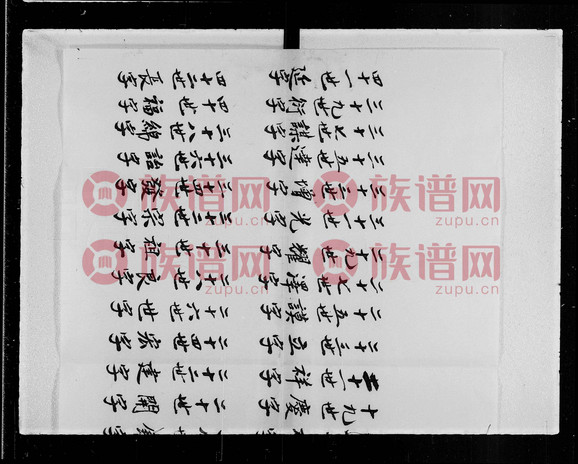 十九世 慶字 二十世 開字
二十一世 祥字 二十二世 建字
二十三世 立字 二十四世 家字
二十五世 謨字 二十六世 世字
二十七世 澤字 二十八世 良字
二十九世 耀字 三十世 祖字
三十一世 光字 三十二世 宗字
三十三世 增字 三十四世 發字
三十五世 達字 三十六世 詒字
三十七世 謀字 三十八世 綿字
三十九世 衍字 四十世 福字
四十一世 延字 四十二世 長字
族谱网 族谱网
zupu.cn zupu.cn
族谱网 族谱网
zupu.cn zupu.cn